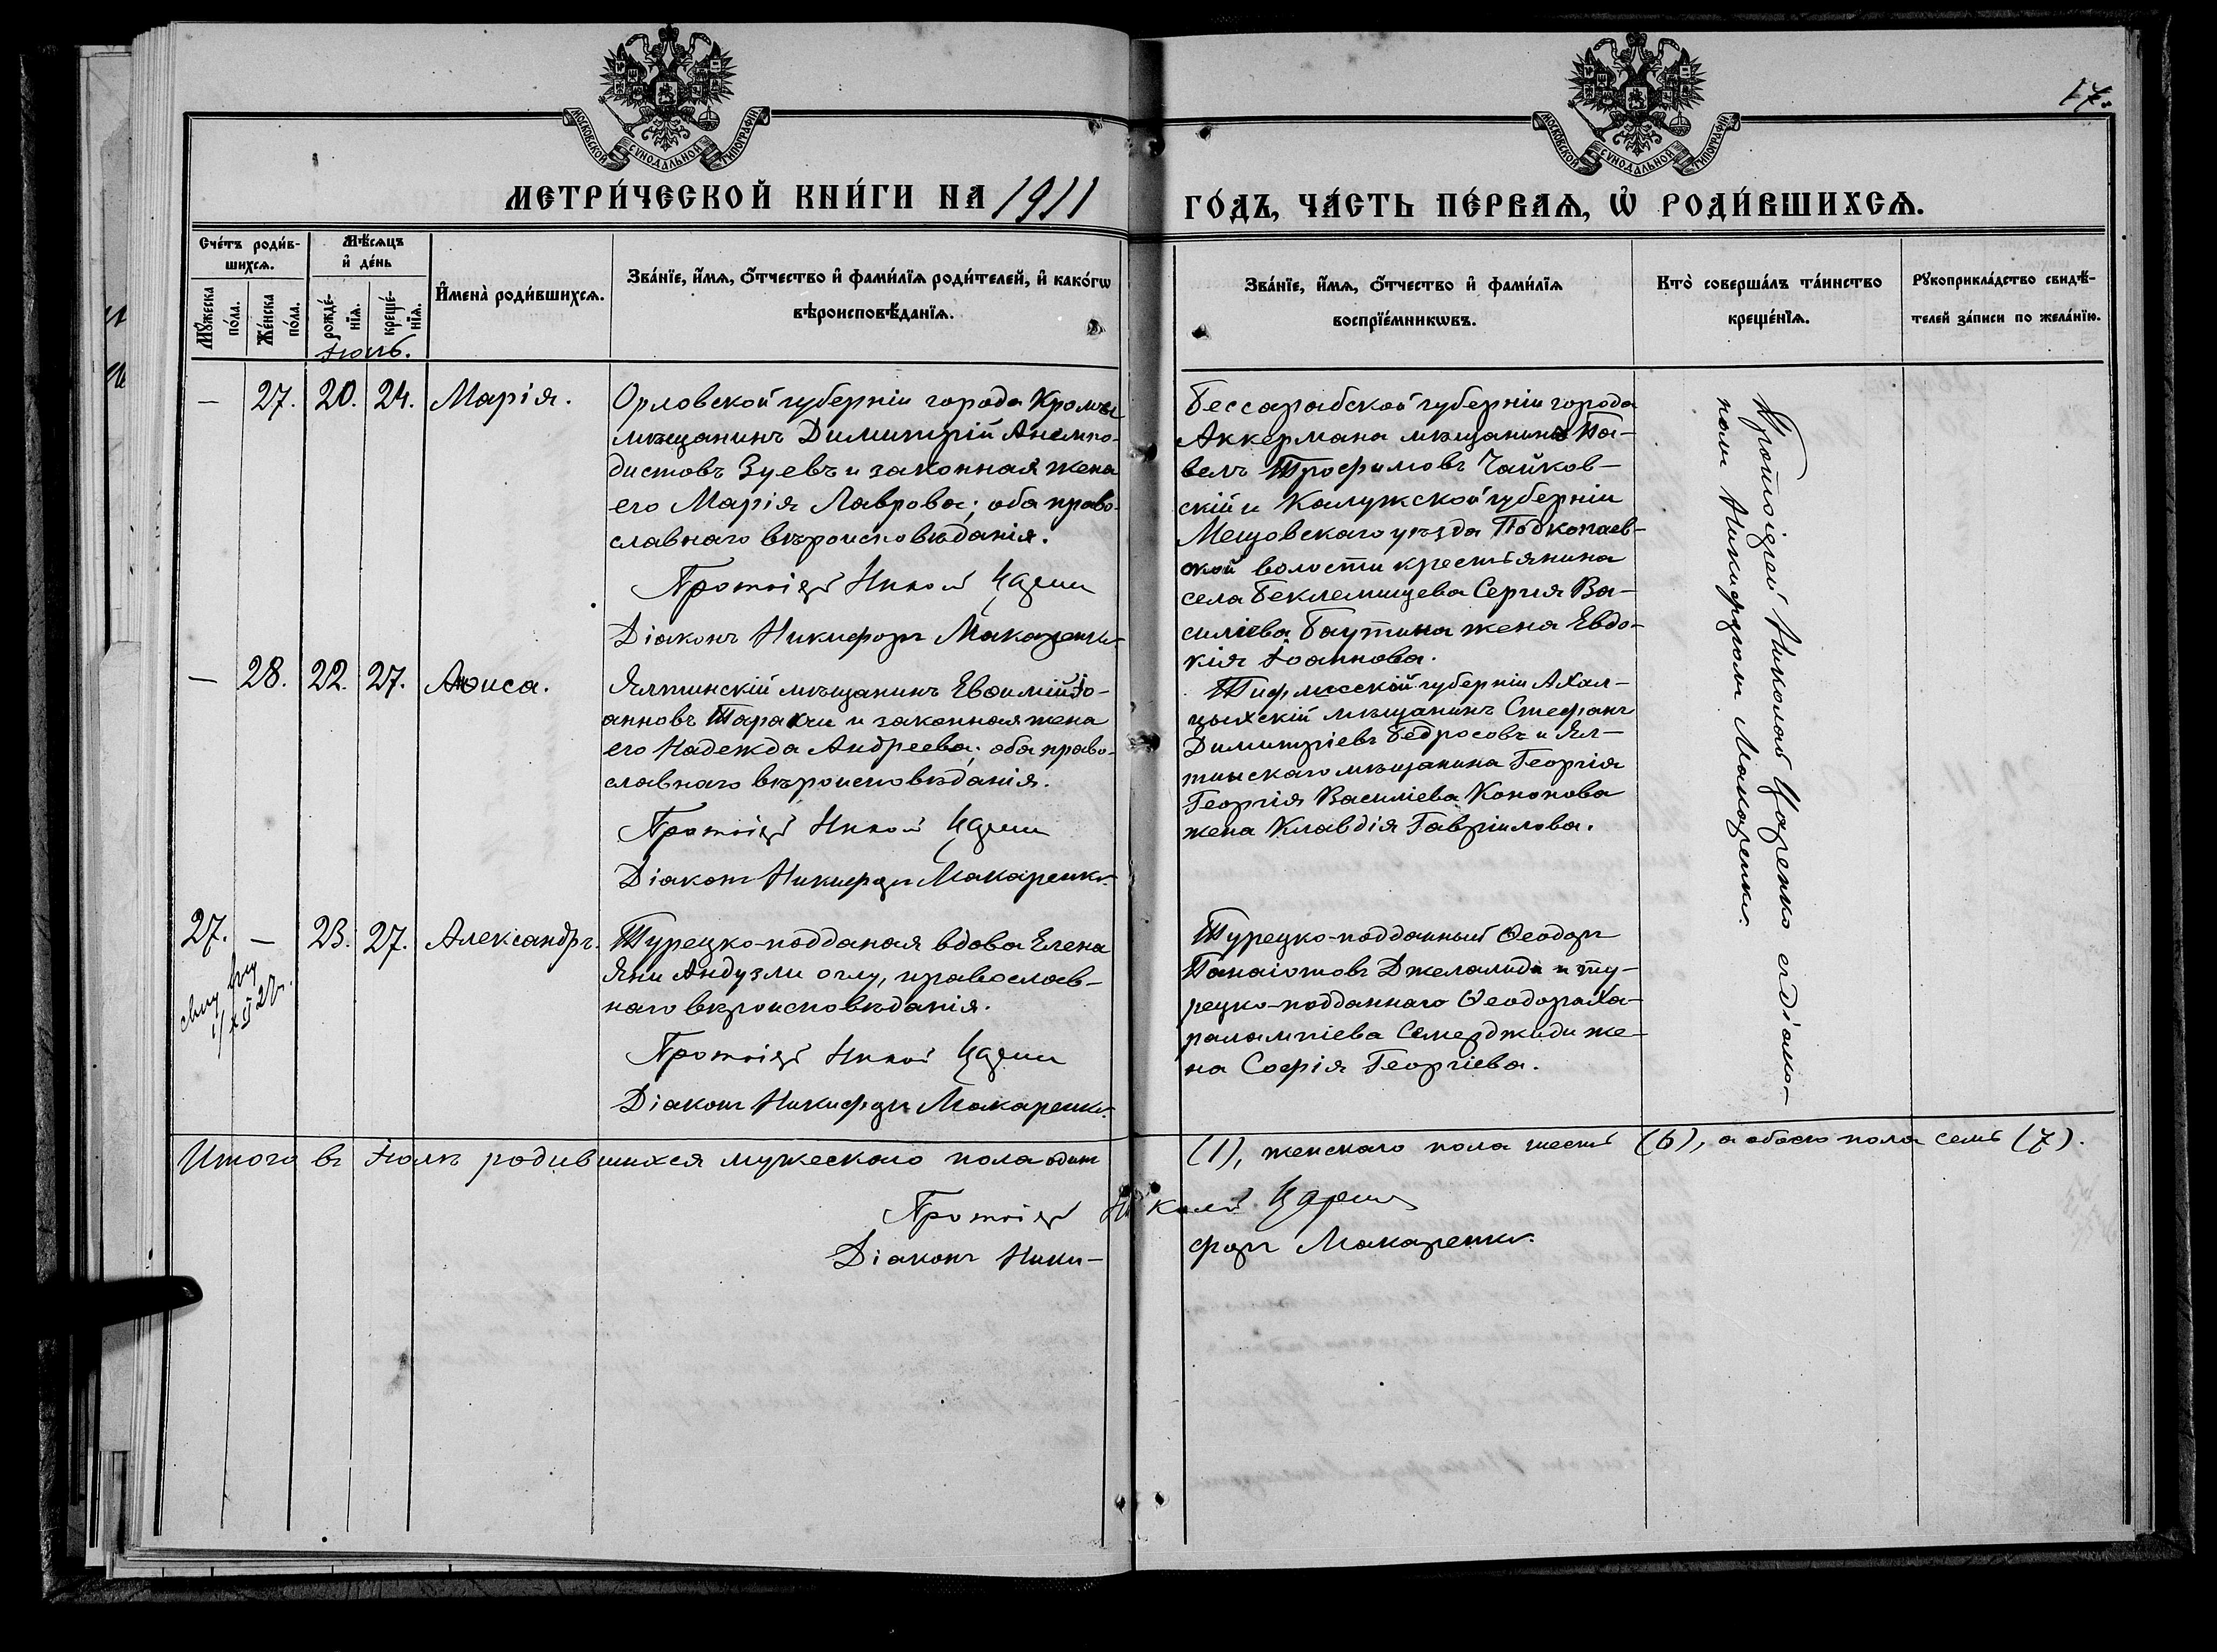 17.
МОСКОВСКОЙ СУНОДАЛЬНОЙ ТИПОГРАФІИ
МОСКОВСКОЙ СУНОДАЛЬНОЙ ТИПОГРАФІИ
МЕТРИ́ЧЕСКОЙ КНИ́ГИ НА 1911
ГО́ДЪ, ЧА́СТЬ ПЕ́РВАѦ, Ѡ҆ РОДИ́ВШИХСѦ.
Сче́тъ роди́в-
шихсѧ.
Мꙋ́жеска по́ла.
Же́нска по́ла.
Мѣ́сѧцъ
и҆ де́нь
рожде́-нїѧ.
креще́-нїѧ.
Іюль.
И҆мена̀ роди́вшихсѧ.
Зва́нїе, и҆́мѧ, ѻ҆́тчество и҆ фами́лїѧ роди́телей, и҆ како́гѡ
вѣроисповѣ́данїѧ.
Зва́нїе, и҆́мѧ, ѻ҆́тчество и҆ фами́лїѧ
воспрїе́мникѡвъ.
Кто̀ соверша́лъ та́инство
креще́нїѧ.
Рꙋкоприкла́дство свидѣ́-
телей за́писи по жела́нїю.
— 27. 20. 24. Марія.
Орловской губерніи города Кромъ
мѣщанинъ Димитрій Анемпо-
дистовъ Зуевъ и законная жена
его Марія Лаврова; оба право-
славнаго вѣроисповѣданія.
Протоіерей Николай Царенко
Діаконъ Никифоръ Макаренко.
Бессарабской губерніи города
Аккермана мѣщанинъ Па-
велъ Трофимовъ Чайков-
скій и Калужской губерніи
Мещовскаго уѣзда Подкопаев-
ской волости крестьянина
села Беклемищева Сергія Ва-
силіева Баутина жена Евдо-
кія Іоаннова.
Протоіерей Николай Царенко съ діако-
номъ Никифоромъ Макаренко.
— 28. 22. 27. Анѳиса.
Ялтинскій мѣщанинъ Евѳимій Іо-
анновъ Тарахчи и законная жена
его Надежда Андреева; оба право-
славнаго вѣроисповѣданія.
Протоіерей Николай Царенко
Діаконъ Никифоръ Макаренко.
Тифлисской губерніи Ахал-
цыхскій мѣщанинъ Стефанъ
Димитріевъ Бедросовъ и Ял-
тинскаго мѣщанина Георгія
Георгія Василіева Кононова
жена Клавдія Гавріилова.
27. — 23. 27. Александръ.
Турецко-подданая вдова Елена
Яни Андузли оглу, православ-
наго вѣроисповѣданія.
Протоіерей Николай Царенко
Діаконъ Никифоръ Макаренко.
Турецко-подданный Ѳеодоръ
Панаіотовъ Джелалиди и ту-
рецко-подданнаго Ѳеодора Ха-
ралампіева Семерджиди же-
на Софія Георгіева.
Итого въ Іюлѣ родившихся мужескаго пола одинъ (1), женскаго пола шесть (6), а обоего пола семь (7).
Протоіерей Николай Царенко
Діаконъ Ники-форъ Макаренко.